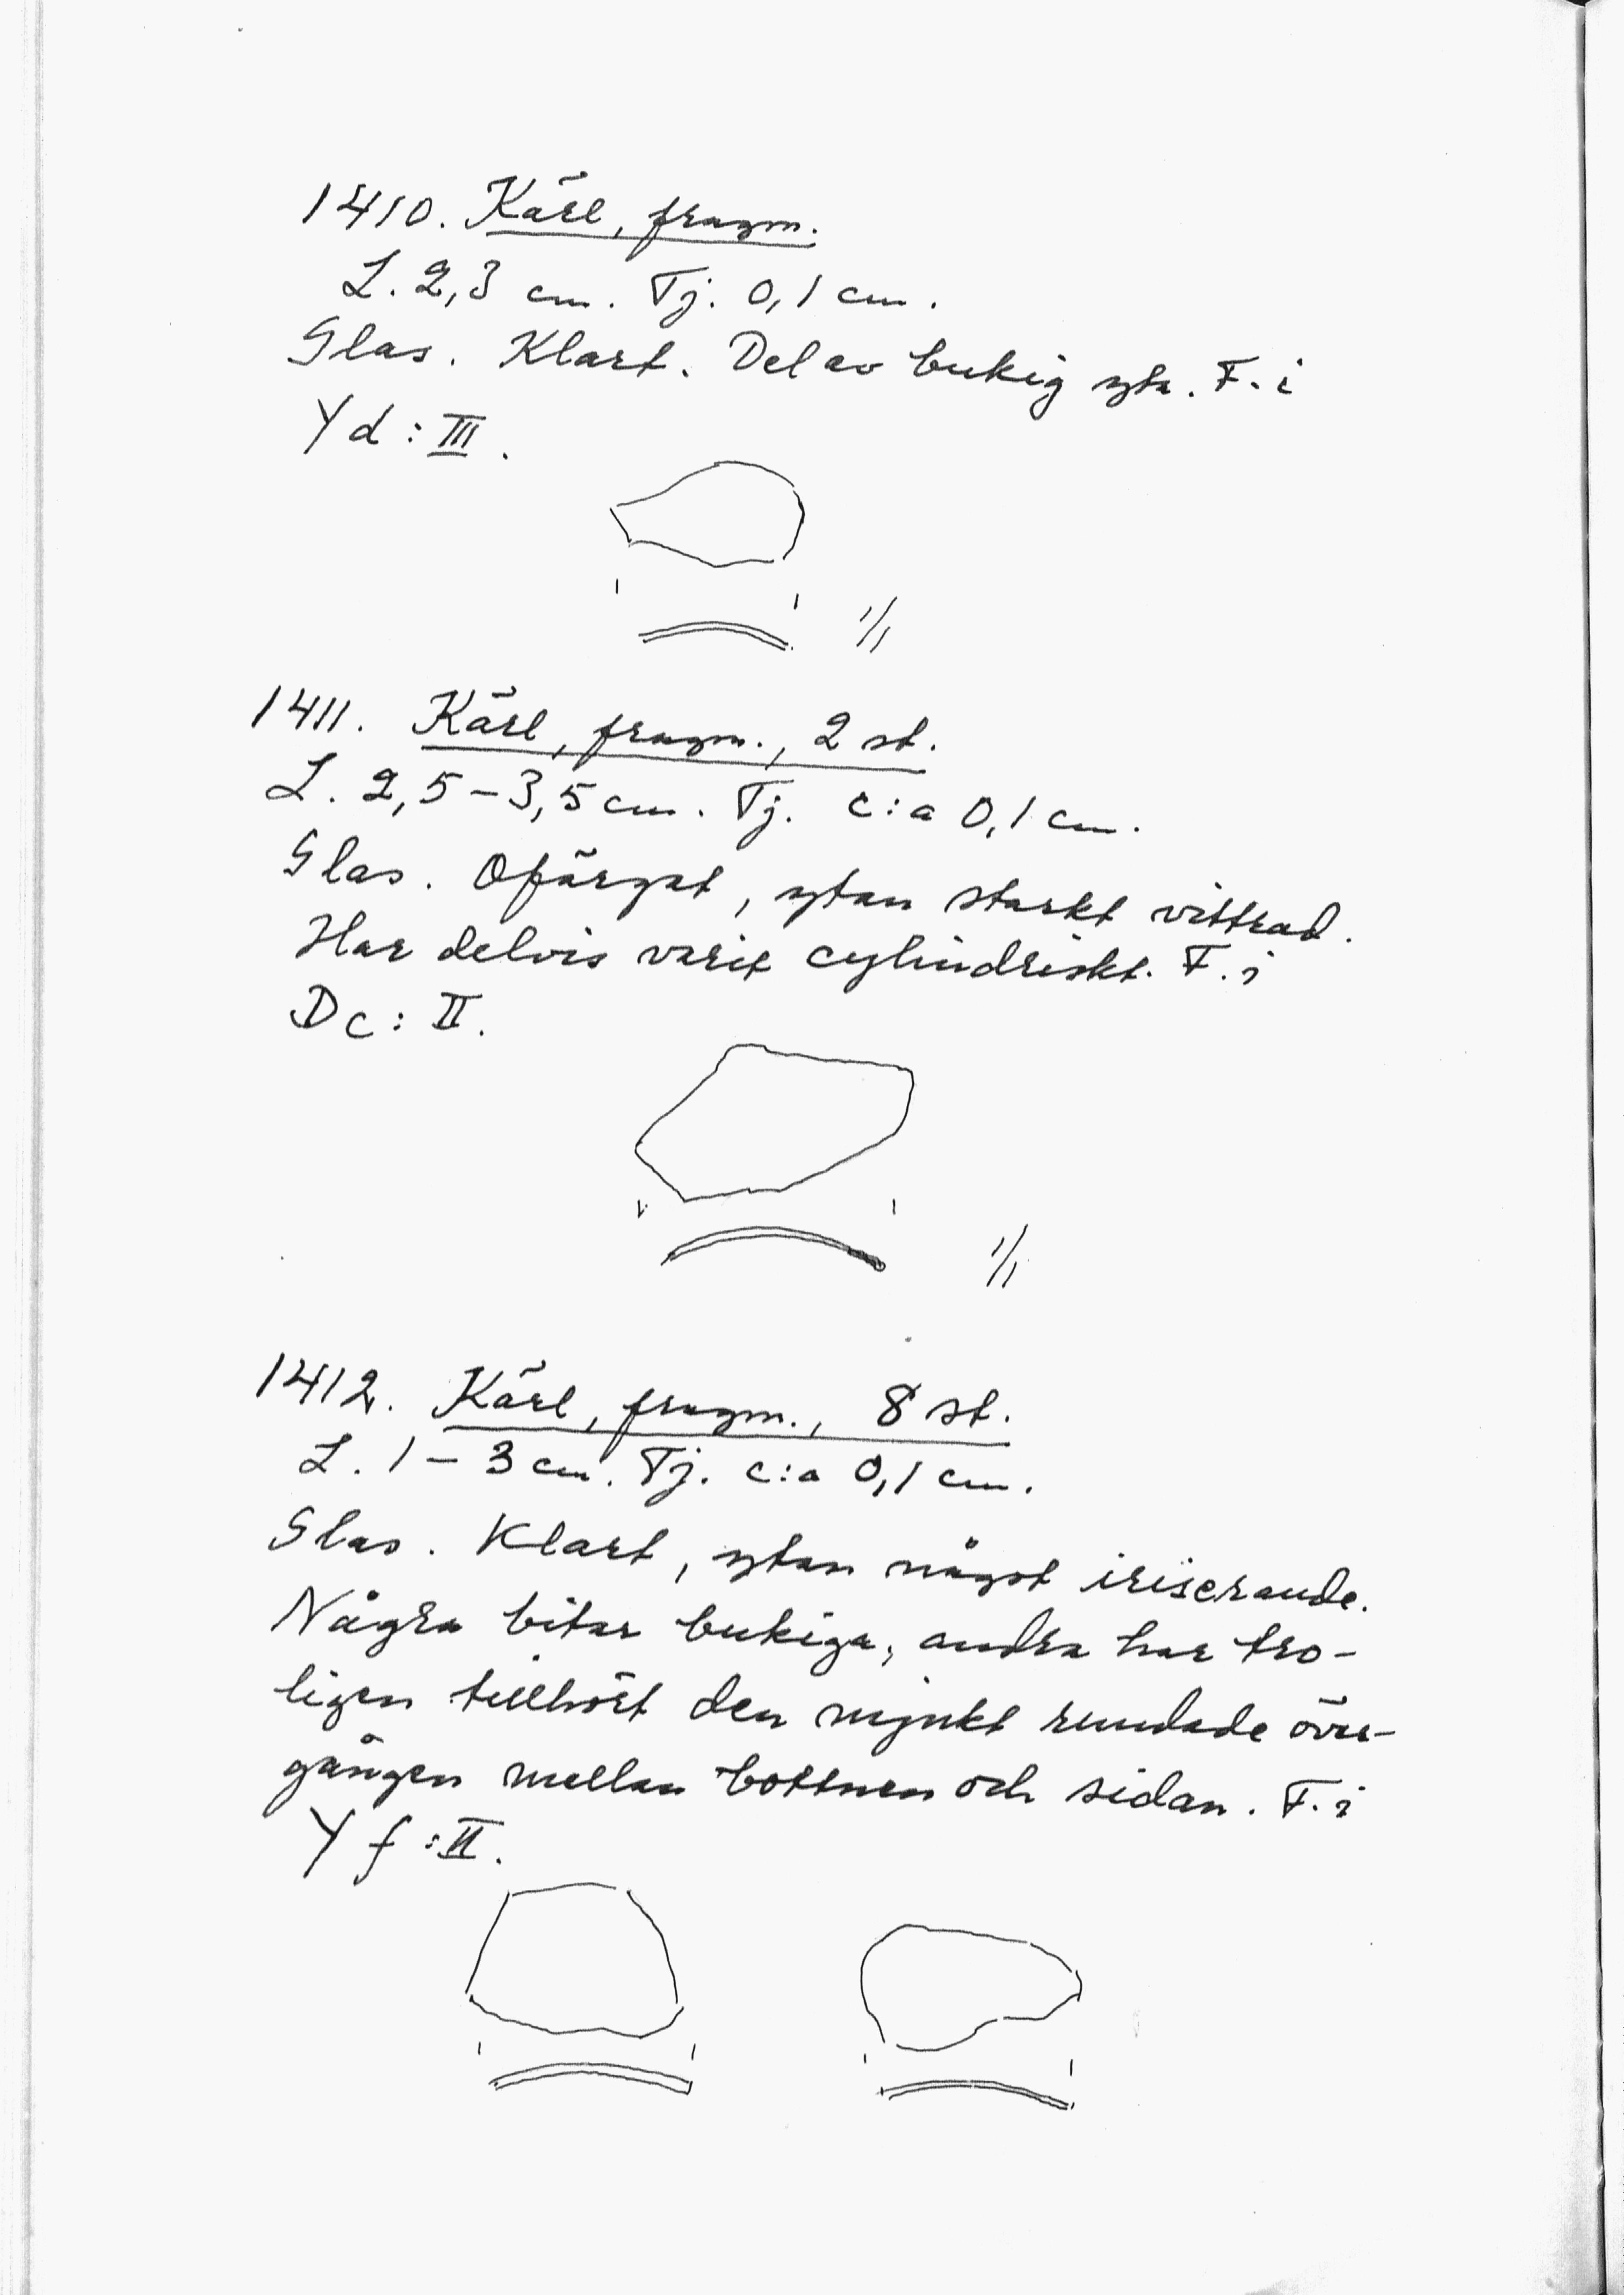 1410. Kärl, fragm.
L. 2,3 cm. Tj. 0,1 cm.
Glas. Klart. Del av bukig yta. F. i
Yd: III.
1/1
1411. Kärl, fragm., 2 st.
L. 2,5-3,5 cm. Tj. c:a 0,1 cm.
Glas. Ofärgat, ytan starkt vittrad.
Har delvis varit cylindriskt. F. i
Dc: II.
1/1
1412. Kärl, fragm., 8 st.
L. 1-3 cm. Tj. c:a 0,1 cm.
Glas. Klart, ytan något iriserande.
Några bitar bukiga, andra har tro-
ligen tillhört den mjukt rundade över-
gången mellan bottnen och sidan. F. i
Yf: II.